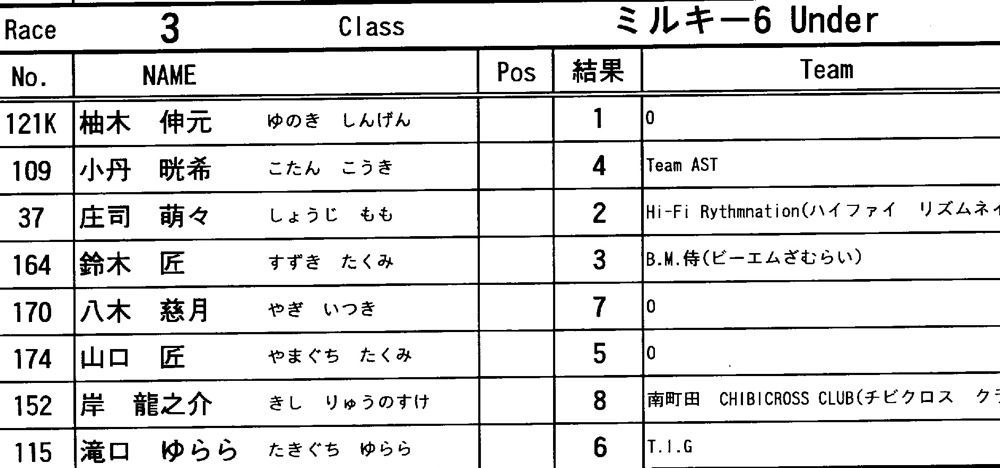 Race 3 Class ミルキー6 Under
No. NAME Pos 結果 Team
121K 柚木 伸元 ゆのき しんげん 1 0
109 小丹 晄希 こたん こうき 4 Team AST
37 庄司 萌々 しょうじ もも 2 Hi-Fi Rythmnation(ハイファイ リズムネイ
164 鈴木 匠 すずき たくみ 3 B.M.侍(ビーエムざむらい)
170 八木 慈月 やぎ いつき 7 0
174 山口 匠 やまぐち たくみ 5 0
152 岸 龍之介 きし りゅうのすけ 8 南町田 CHIBICROSS CLUB(チビクロス クラ
115 滝口 ゆらら たきぐち ゆらら 6 T.I.G